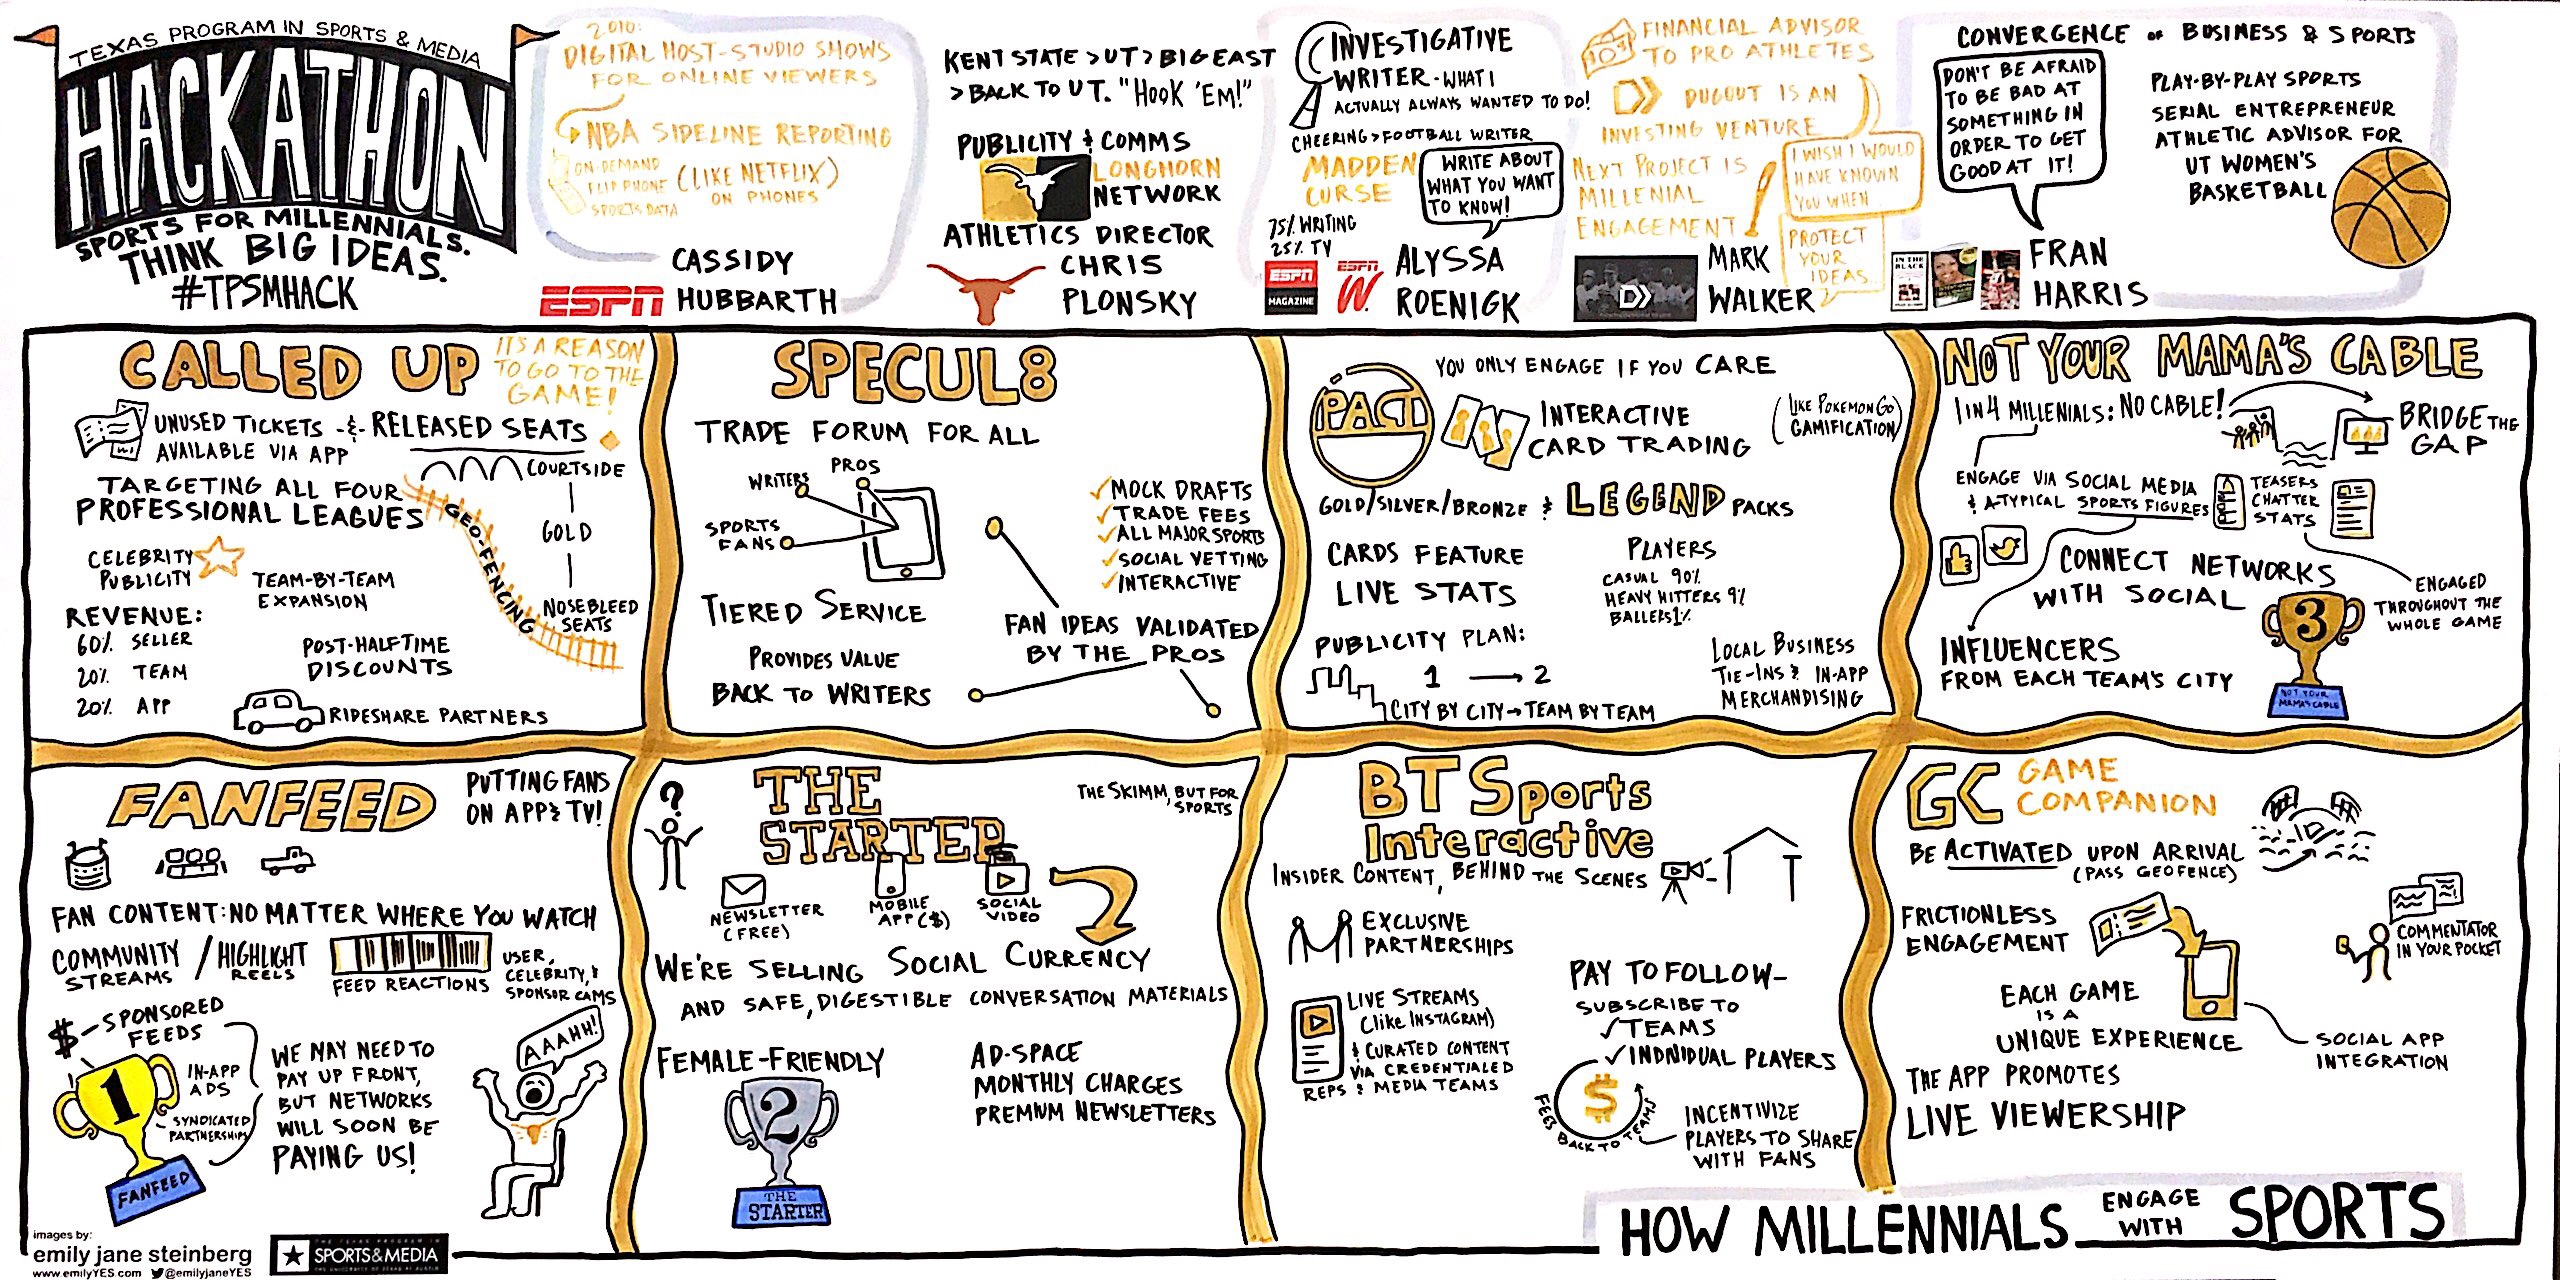 TEXAS PROGRAM IN SPORTS & MEDIA
HACKATHON
SPORTS FOR MILLENNIALS.
THINK BIG IDEAS.
#TPSMHACK
2010:
DIGITAL HOST-STUDIO SHOWS
FOR ONLINE VIEWERS
NBA SIDELINE REPORTING
ON-DEMAND
FLIP PHONE
SPORTS DATA
(LIKE NETFLIX)
ON PHONES
ESPN
CASSIDY
HUBBARTH
KENT STATE > UT > BIG EAST
> BACK TO UT. "HOOK 'EM!"
PUBLICITY & COMMS
LONGHORN
NETWORK
ATHLETICS DIRECTOR
CHRIS
PLONSKY
INVESTIGATIVE
WRITER - WHAT I
ACTUALLY ALWAYS WANTED TO DO!
CHEERING > FOOTBALL WRITER
MADDEN
CURSE
WRITE ABOUT
WHAT YOU WANT
TO KNOW!
75% WRITING
25% TV
ESPN
MAGAZINE
ESPN
W.
ALYSSA
ROENIGK
FINANCIAL ADVISOR
TO PRO ATHLETES
DUGOUT IS AN
INVESTING VENTURE
NEXT PROJECT IS
MILLENIAL
ENGAGEMENT
I WISH I WOULD
HAVE KNOWN
YOU WHEN
PROTECT
YOUR
IDEAS..
MARK
WALKER
CONVERGENCE OF BUSINESS & SPORTS
DON'T BE AFRAID
TO BE BAD AT
SOMETHING IN
ORDER TO GET
GOOD AT IT!
PLAY-BY-PLAY SPORTS
SERIAL ENTREPRENEUR
ATHLETIC ADVISOR FOR
UT WOMEN'S
BASKETBALL
IN THE
BLACK
FRAN
HARRIS
CALLED UP
IT'S A REASON
TO GO TO THE
GAME!
UNUSED TICKETS -&- RELEASED SEATS
AVAILABLE VIA APP
TARGETING ALL FOUR
PROFESSIONAL LEAGUES
COURTSIDE
GOLD
NOSEBLEED
SEATS
GEO-FENCING
CELEBRITY
PUBLICITY
TEAM-BY-TEAM
EXPANSION
REVENUE:
60% SELLER
20% TEAM
20% APP
POST-HALFTIME
DISCOUNTS
RIDESHARE PARTNERS
SPECUL8
TRADE FORUM FOR ALL
WRITERS
PROS
SPORTS
FANS
✓MOCK DRAFTS
✓TRADE FEES
✓ALL MAJOR SPORTS
✓SOCIAL VETTING
✓INTERACTIVE
TIERED SERVICE
FAN IDEAS VALIDATED
BY THE PROS
PROVIDES VALUE
BACK TO WRITERS
PACT
YOU ONLY ENGAGE IF YOU CARE
INTERACTIVE
CARD TRADING
(LIKE POKEMON GO
GAMIFICATION)
GOLD/SILVER/BRONZE & LEGEND PACKS
CARDS FEATURE
LIVE STATS
PLAYERS
CASUAL 90%
HEAVY HITTERS 9%
BALLERS 1%
PUBLICITY PLAN:
1 → 2
CITY BY CITY → TEAM BY TEAM
LOCAL BUSINESS
TIE-INS & IN-APP
MERCHANDISING
NOT YOUR MAMA'S CABLE
1 IN 4 MILLENIALS: NO CABLE!
BRIDGE THE
GAP
ENGAGE VIA SOCIAL MEDIA
& A-TYPICAL SPORTS FIGURES
TEASERS
CHATTER
STATS
CONNECT NETWORKS
WITH SOCIAL
ENGAGED
THROUGHOUT THE
WHOLE GAME
INFLUENCERS
FROM EACH TEAM'S CITY
3
NOT YOUR
MAMA'S CABLE
FANFEED
PUTTING FANS
ON APP & TV!
FAN CONTENT: NO MATTER WHERE YOU WATCH
COMMUNITY
STREAMS
/ HIGHLIGHT
REELS
FEED REACTIONS
USER,
CELEBRITY, &
SPONSOR CAMS
$ - SPONSORED
FEEDS
IN-APP
ADS
- SYNDICATED
PARTNERSHIPS
1
FANFEED
WE MAY NEED TO
PAY UP FRONT,
BUT NETWORKS
WILL SOON BE
PAYING US!
AAAHH!
?
THE
STARTER
THE SKIMM, BUT FOR
SPORTS
NEWSLETTER
(FREE)
MOBILE
APP ($)
SOCIAL
VIDEO
WE'RE SELLING SOCIAL CURRENCY
AND SAFE, DIGESTIBLE CONVERSATION MATERIALS
FEMALE-FRIENDLY
AD-SPACE
MONTHLY CHARGES
PREMIUM NEWSLETTERS
2
THE
STARTER
BT Sports
Interactive
INSIDER CONTENT, BEHIND THE SCENES
EXCLUSIVE
PARTNERSHIPS
LIVE STREAMS
(like INSTAGRAM)
& CURATED CONTENT
VIA CREDENTIALED
REPS & MEDIA TEAMS
PAY TO FOLLOW-
SUBSCRIBE TO
✓TEAMS
✓INDIVIDUAL PLAYERS
$
FEES BACK TO TEAMS
INCENTIVIZE
PLAYERS TO SHARE
WITH FANS
GC GAME
COMPANION
BE ACTIVATED UPON ARRIVAL
(PASS GEOFENCE)
FRICTIONLESS
ENGAGEMENT
COMMENTATOR
IN YOUR POCKET
EACH GAME
IS A
UNIQUE EXPERIENCE
SOCIAL APP
INTEGRATION
THE APP PROMOTES
LIVE VIEWERSHIP
HOW MILLENNIALS ENGAGE WITH SPORTS
images by:
emily jane steinberg
www.emilyYES.com @emilyjaneYES
THE TEXAS PROGRAM IN
SPORTS & MEDIA
THE UNIVERSITY OF TEXAS AT AUSTIN